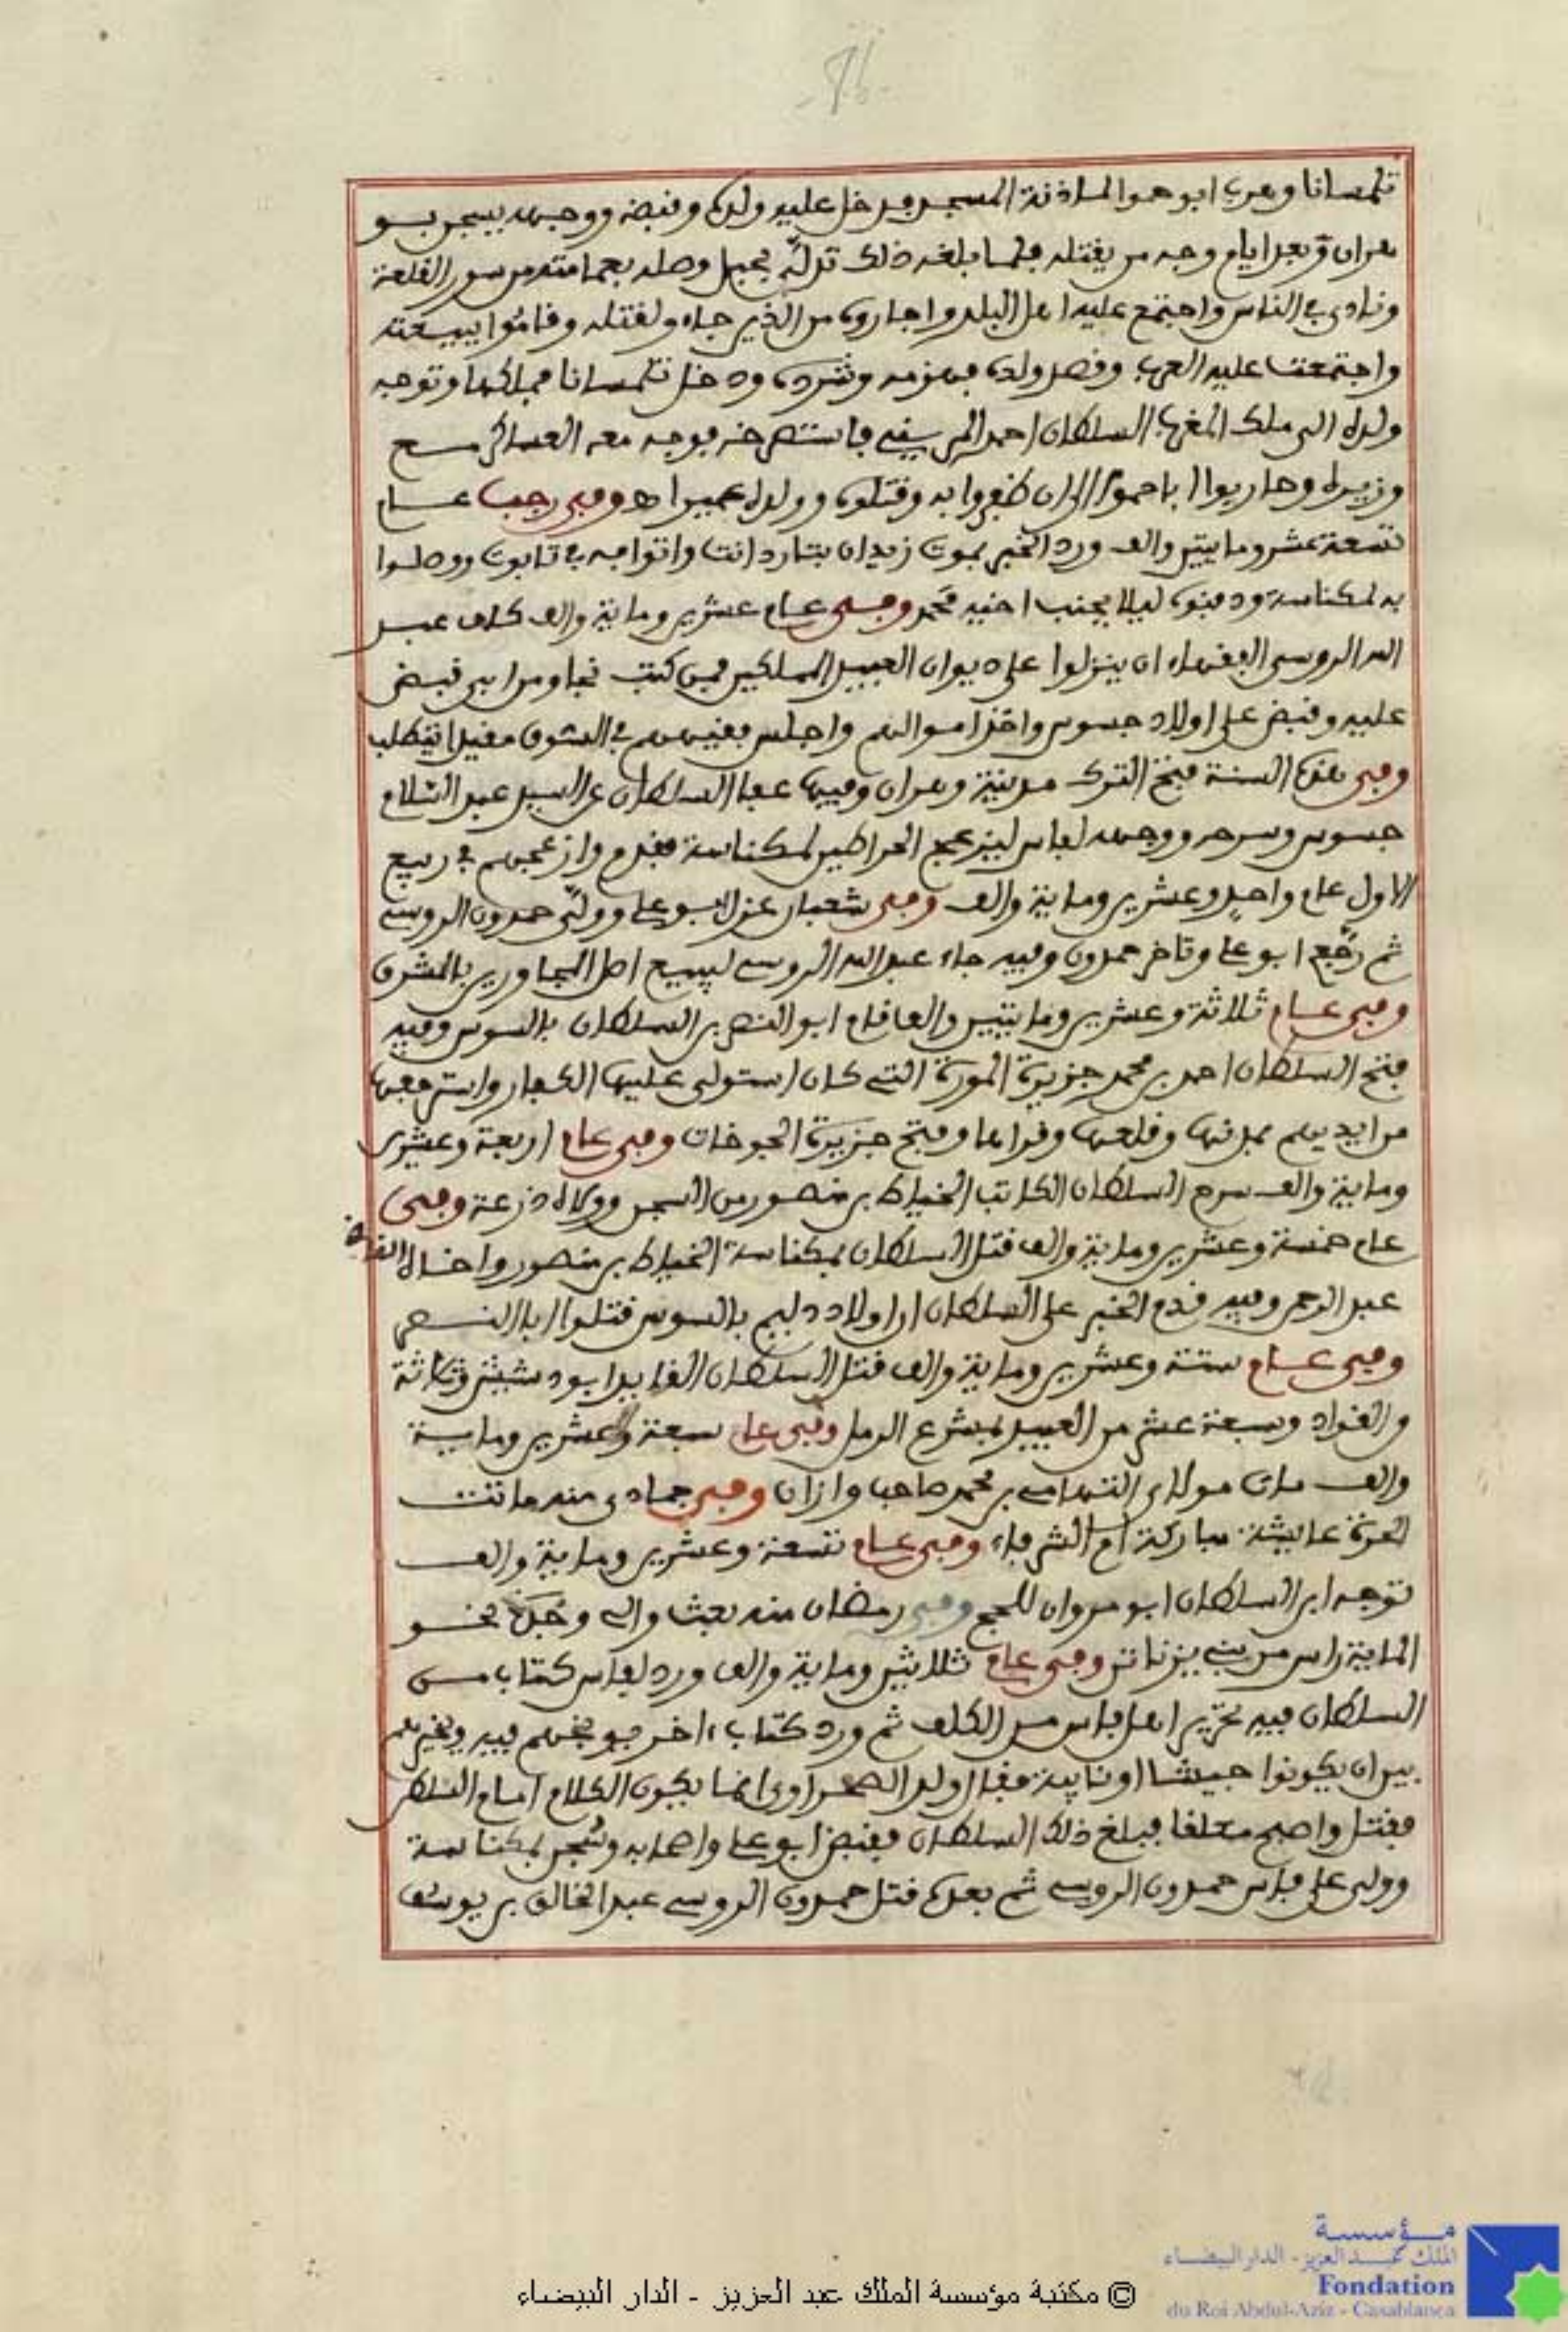 تلمسانا وهرب ابو حموا لماذنة المسجد فدخل عليه ولده وقبضه ووجهه يسجن بسو
هران وبعد ايام وجه من يقتله فلما بلغه ذلك تدلّى بحبل وصله بعمامته من سور القلعة
ونادى في الناس واجتمع عليه اهل البلد واجاروه من الذين جاءو لقتله وقاموا ببيعته
واجتمعت عليه العرب وقصد ولده فهزمه وشرده ودخل تلمسانا فملكها وتوجه
ولده الى ملك المغرب السلطان احمد المريني فاستصرخه فوجه معه العساكر مع
وزيره وحاربوا اباحموا الى ان ظفروا به وقتلوه وولده عميرا اهـ وفى رجب عام
تسعة عشر ومايتين والف ورد الخبر بموت زيدان بتاردانت واتوا به في تابوت ووصلوا
به لمكناسة ودفنوه ليلا بجنب اخيه محمد وفى عام عشرين وماية والف كلف عبد
الله الروسي الفقهاء ان ينزلوا على ديوان العبيد المملكين فمن كتب نجا ومن ابى قبض
عليه وقبض على اولاد جسوس واخذ اموالهم واجلس فقيههم في السوق مقيدا يطلب
وفى هذه السنة فتح الترك مدينة وهران وفيها عفا السلطان عن السيد عبد السلام
جسوس وسرحه ووجهه لفاس ليزعج الحراطين لمكناسة فقدم وازعجهم في ربيع
الاول عام واحد وعشرين وماية والف وفى شعبان عزل ابو علي وولّى حمدون الروسي
ثم رجع ابو علي وتاخر حمدون وفيه جاء عبد الله الروسي ليبيع اصل المجاورين بالمشرق
وفى عام ثلاثة وعشرين ومايتين والف قام ابو النصر بن السلطان بالسوس وفيه
فتح السلطان احمد بن محمد جزيرة المورة التي كان استولى عليها الكفار واسترجعها
من ايديهم بمدنها وقلعها وقراها وفتح جزيرة الجوخات وفى عام اربعة وعشرين
وماية والف سرح السلطان الكاتب الخياط بن منصور من السجن وولاه درعة وفى
عام خمسة وعشرين وماية والف قتل السلطان بمكناسة الخياط بن منصور واخاه القايد
عبد الرحمن وفيه قدم الخبر على السلطان ان اولاد دليم بالسوس قتلوا ابا النصر
وفى عام ستة وعشرين وماية والف قتل السلطان القايد ابو دشيش وثلاثة
والقواد وسبعة عشر من العبيد بمشرع الرمل وفى عام سبعة وعشرين وماية
والف مات مولاي التهامي بن محمد صاحب وازان وفى جمادى منه ماتت
الحرة عايشة مباركة ام الشرفاء وفى عام تسعة وعشرين وماية والف
توجه ابن السلطان ابو مروان للحج وفى رمضان منه بعث والي وجدة نحو
الماية راس من بني يزناتن وفى عام ثلاثين وماية والف ورد لفاس كتاب من
السلطان فيه تحرير اهل فاس من الكلف ثم ورد كتاب اخر يوبخهم فيه ويخيرهم
بين ان يكونوا جيشا او نايبة فقال ولد الصحراوي انما يكون الكلام امام السلطان
فقتل واصبح معلقا فبلغ ذلك السلطان فقبض ابو علي واصحابه وسجن بمكناسة
وولى على فاس حمدون الروسي ثم بعده قتل حمدون الروسي عبد الخالق بن يوسف
مؤسسة
الملك عبد العزيز - الدار البيضاء
Fondation
du Roi Abdul-Aziz - Casablanca
© مكتبة مؤسسة الملك عبد العزيز - الدار البيضاء